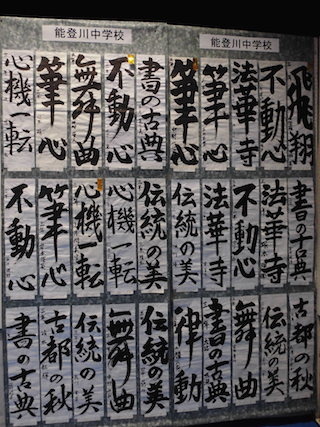 能登川中学校
飛翔
不動心
法華寺
筆心
筆心
書の古典
法華寺
不動心
法華寺
伝統の美
古都の秋
伝統の美
舞曲
書の古典
律動
能登川中学校
書の古典
不動心
舞曲
筆心
心機一転
伝統の美
心機一転
心機一転
筆心
不動心
伝統の美
舞曲
伝統の美
古都の秋
書の古典